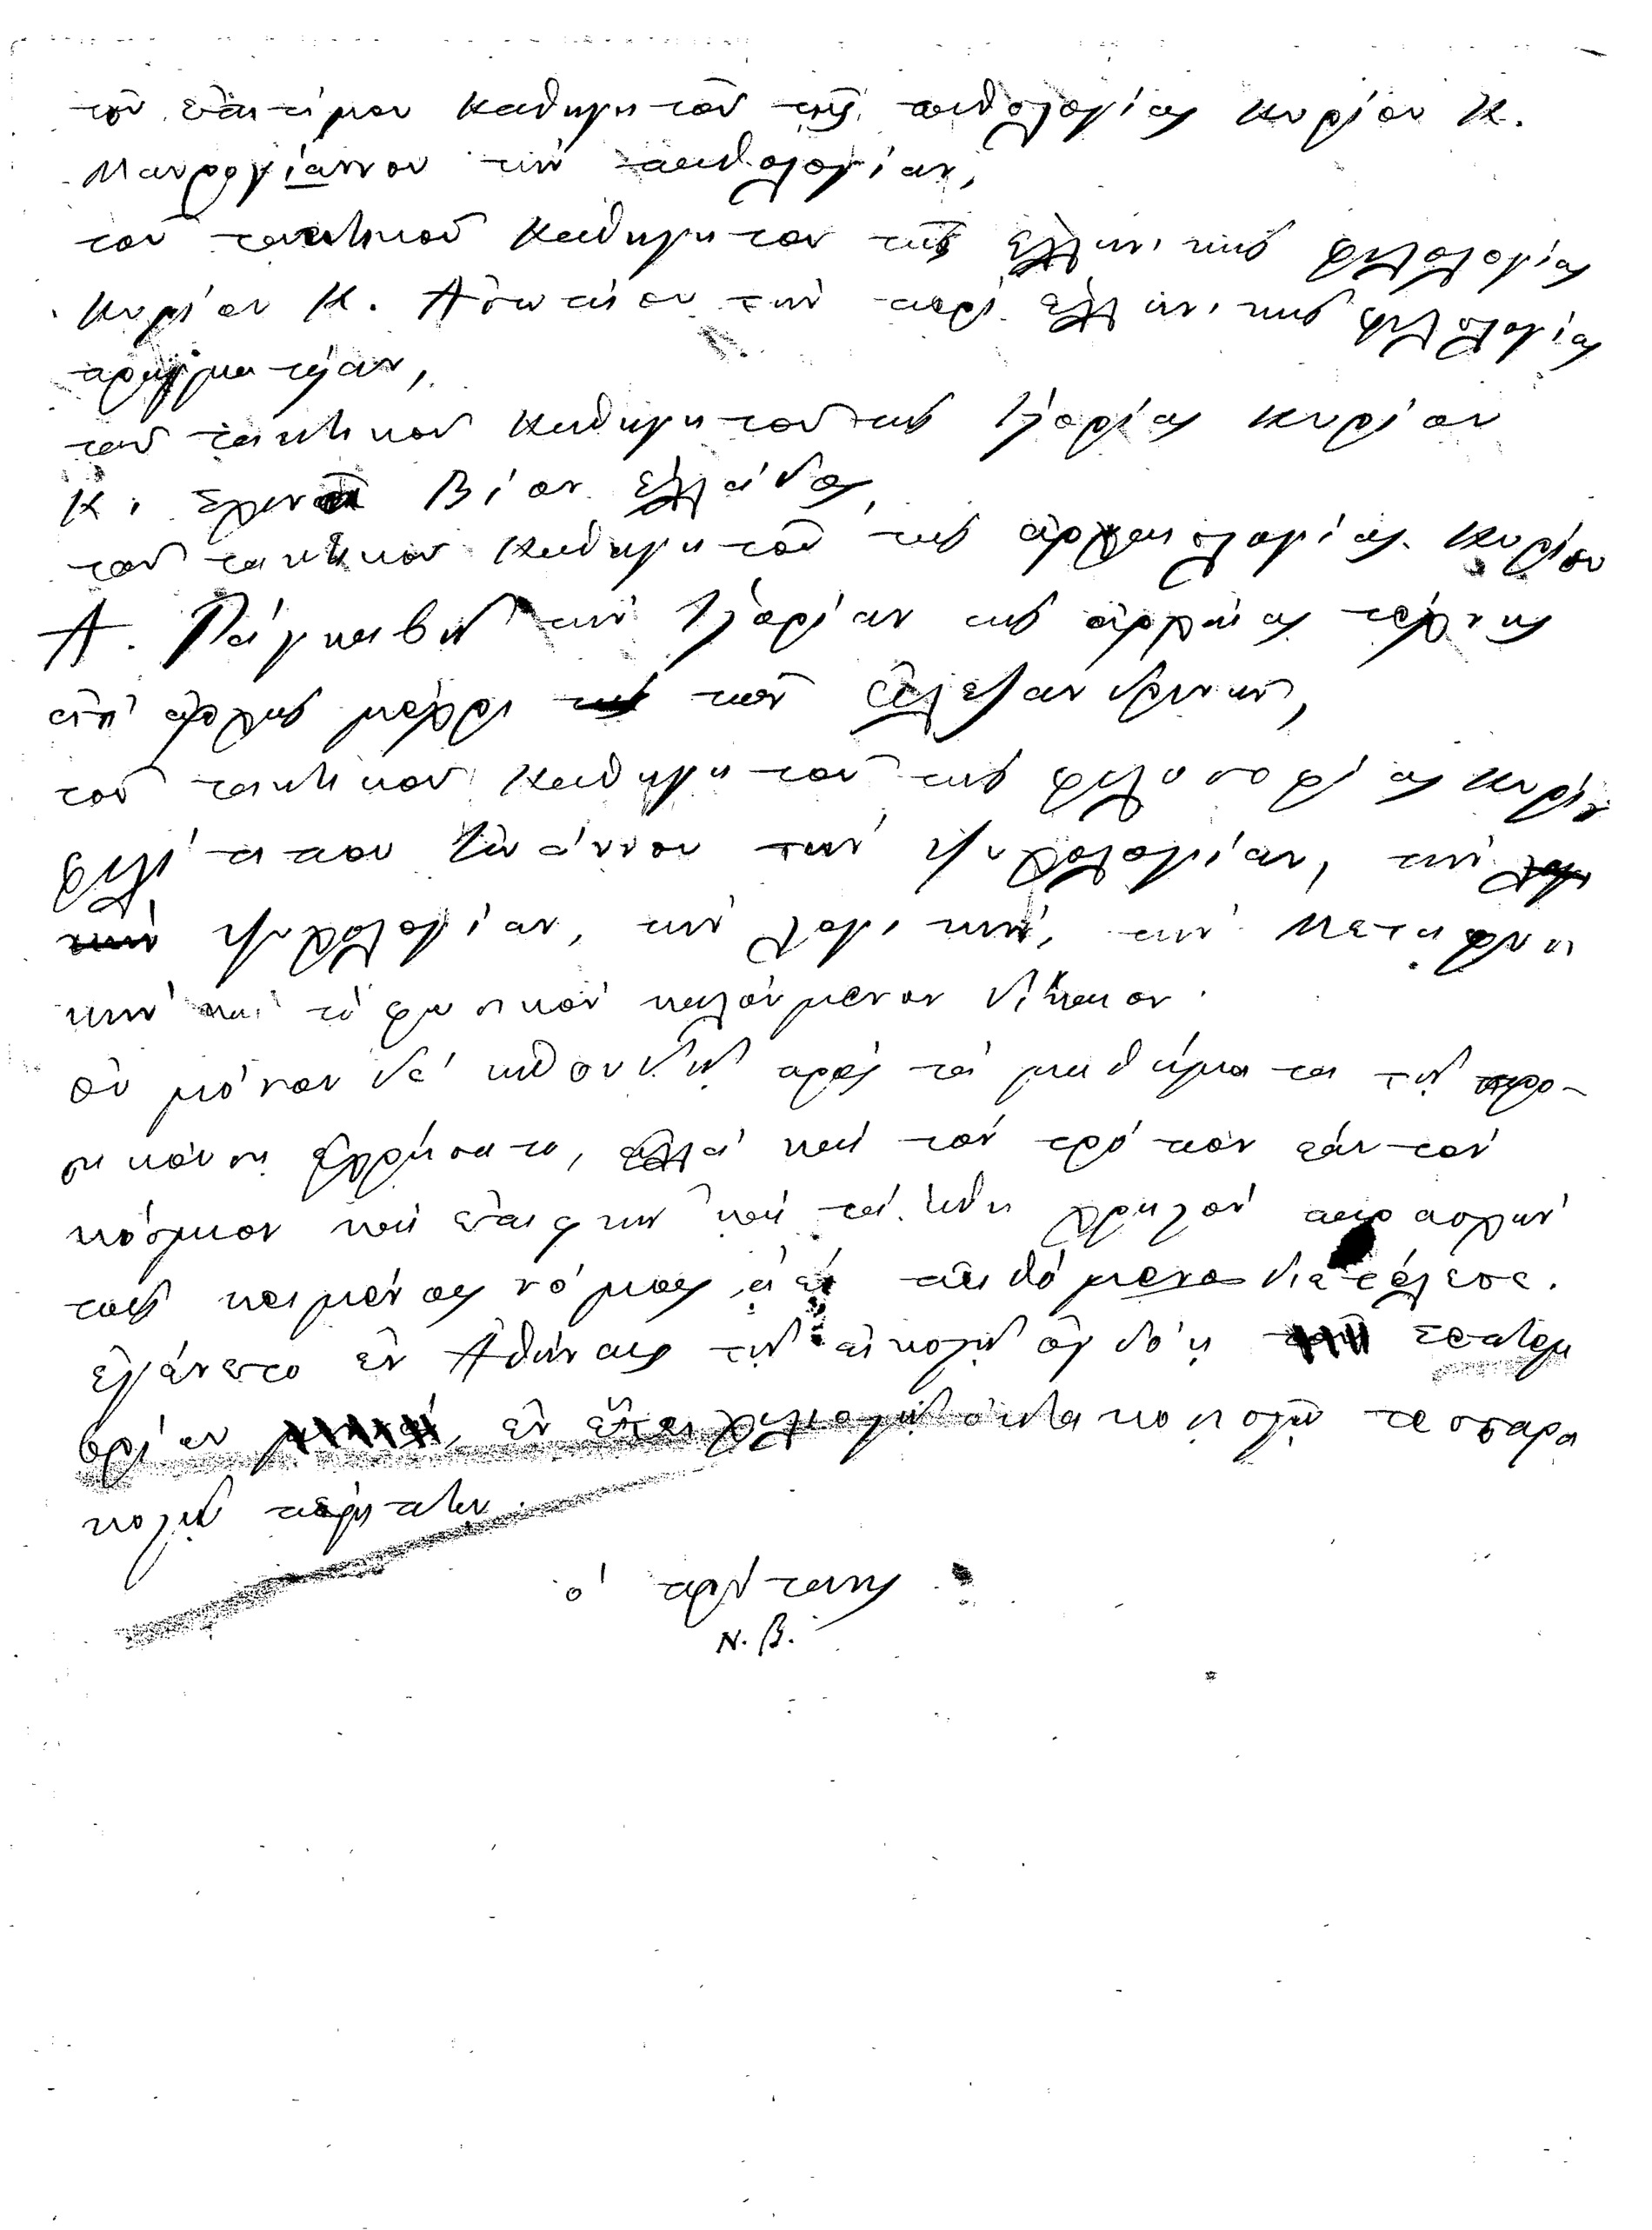 τοῦ ἐπιτίμου καθηγητοῦ τῆς παθολογίας κυρίου Κ.
Μαυρογιάννου τὴν παθολογίαν,
τοῦ τακτικοῦ καθηγητοῦ τῆς ἑλληνικῆς φιλολογίας
κυρίου Κ. Ἀσωπίου τὴν περὶ ἑλληνικῆς φιλολογίας
πραγματείαν,
τοῦ τακτικοῦ καθηγητοῦ τῆς ἱστορίας κυρίου
Κ. Σχινᾶ Βίον Ἑλλάδος,
τοῦ τακτικοῦ καθηγητοῦ τῆς ἀρχαιολογίας κυρίου
Α. Ῥαγκαβῆ τὴν ἱστορίαν τῆς ἀρχαίας τέχνης
ἀπ' ἀρχῆς μέχρι τῶν Ἀλεξανδρινῶν,
τοῦ τακτικοῦ καθηγητοῦ τῆς φιλοσοφίας κυρίου
Φιλίππου Ἰωάννου τὴν ψυχολογίαν, τὴν
ψυχολογίαν, τὴν λογικήν, τὴν μεταφυσι
κὴν καὶ τὸ φυσικὸν καλούμενον δίκαιον.
Οὐ μόνον δὲ σπουδῇ πρὸς τὰ μαθήματα τῇ προ-
σηκούσῃ ἐχρήσατο, ἀλλὰ καὶ τὸν τρόπον ἑαυτὸν
κόσμιον καὶ ἐπιεικῆ καὶ τὰ ἤθη χρηστὸν παρασχὼν
τοῖς κειμένοις νόμοις ἀεὶ πειθόμενος διετέλεσε.
Ἐγένετο ἐν Ἀθήναις τῇ εἰκοστῇ ὀγδόῃ Σεπτεμ
βρίου, ἐν ἔτει χιλιοστῷ ὀκτακοσιοστῷ τεσσαρα
κοστῷ πέμπτῳ.
ὁ πρύτανις
Ν. Β.